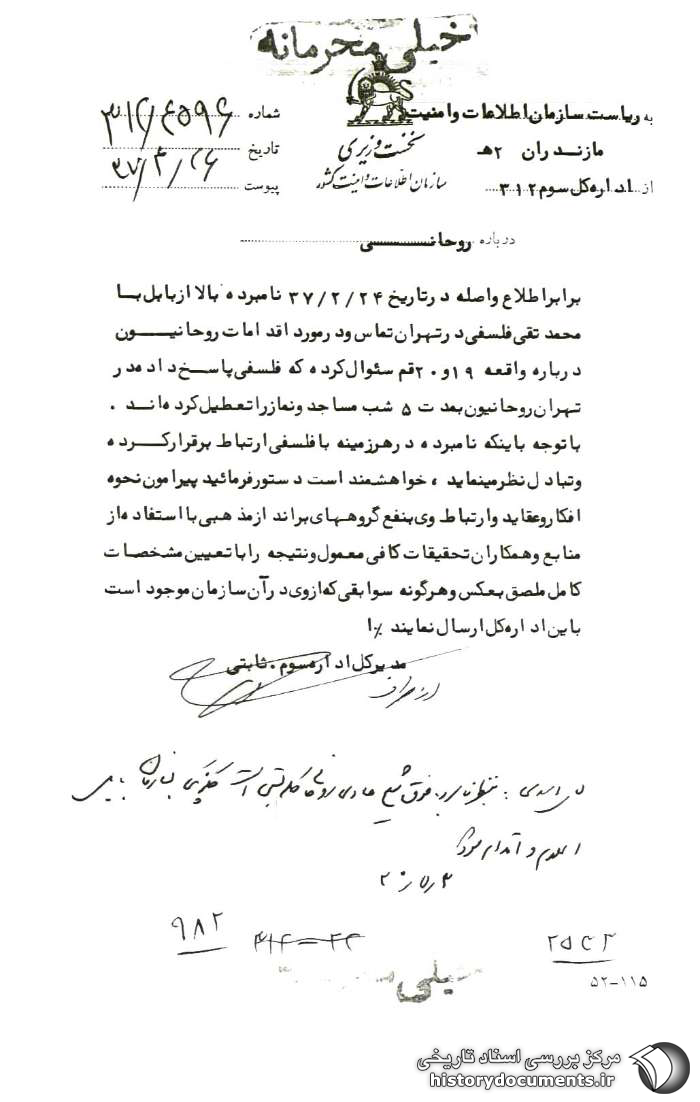 خیلی محرمانه
به ریاست سازمان اطلاعات وامنیت
مازندران ۲هـ
از اداره کل سوم ۳۱۲
نخست وزیری
سازمان اطلاعات و امنیت کشور
شماره
تاریخ
پیوست
درباره روحانی
برابراطلاع واصله درتاریخ ۳۷/۲/۲۴ نامبرده بالا ازبابل با
محمد تقی فلسفی درتهران تماس ودرمورد اقدامات روحانیون
درباره واقعه ۱۹و۲۰قم سئوال کرده که فلسفی پاسخ داده در
تهران روحانیون بمدت ۵ شب مساجد ونمازرا تعطیل کرده اند .
باتوجه باینکه نامبرده درهرزمینه با فلسفی ارتباط برقرارکرده
وتبادل نظرمینماید ، خواهشمند است دستورفرمائید پیرامون نحوه
افکاروعقاید وارتباط وی بنفع گروههای براندازمذهبی با استفاده از
منابع وهمکاران تحقیقات کافی معمول ونتیجه را با تعیین مشخصات
کامل ملصق بعکس وهرگونه سوابقی که ازوی درآن سازمان موجود است
باین اداره کل ارسال نمایند %۱
مدیرکل اداره سوم . ثابتی
از طرف
۹۸۲
۲۵۴۳
۵۲-۱۱۵
خیلی
مرکز بررسی اسناد تاریخی
historydocuments.ir